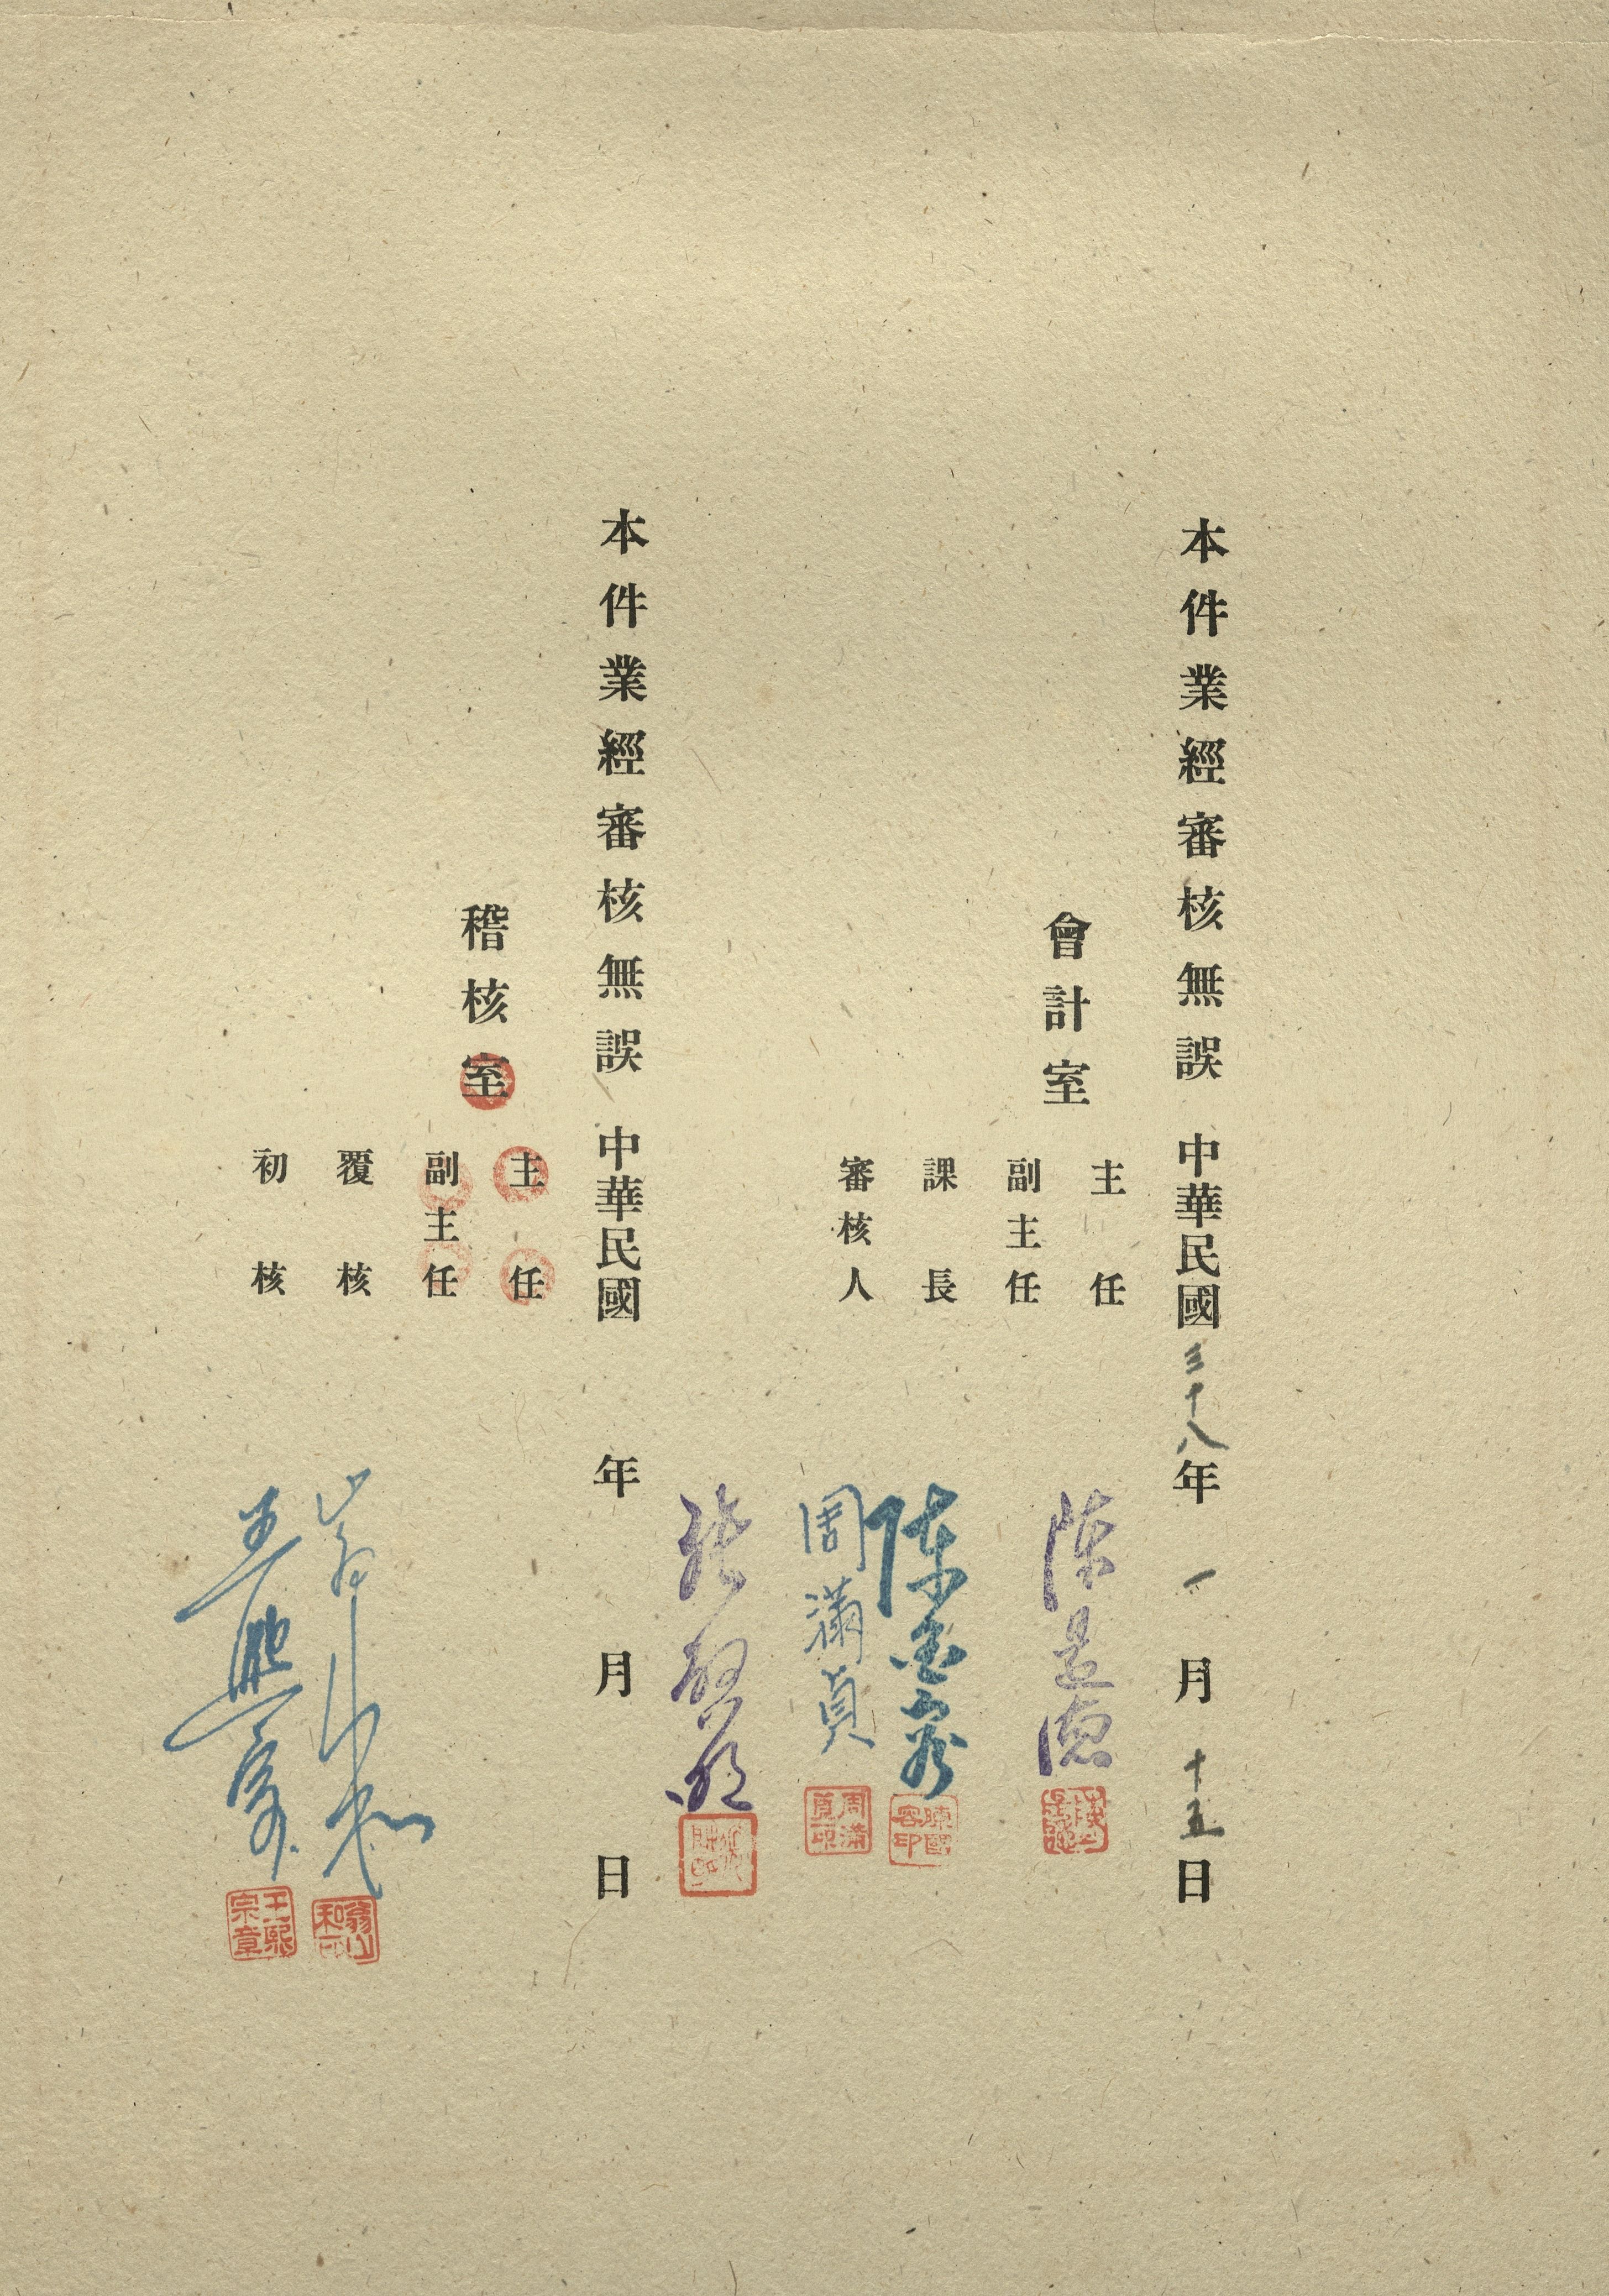 本件業經審核無誤 中華民國三十八年一月十五日
會計室
主任 陳是德
副主任
課長 陳國容
審核人 周滿貞
本件業經審核無誤 中華民國 年 月 日
稽核室
主任
副主任
覆核
初核 王熙宗
陳國容印
周滿貞印
翁山和印
王熙宗章